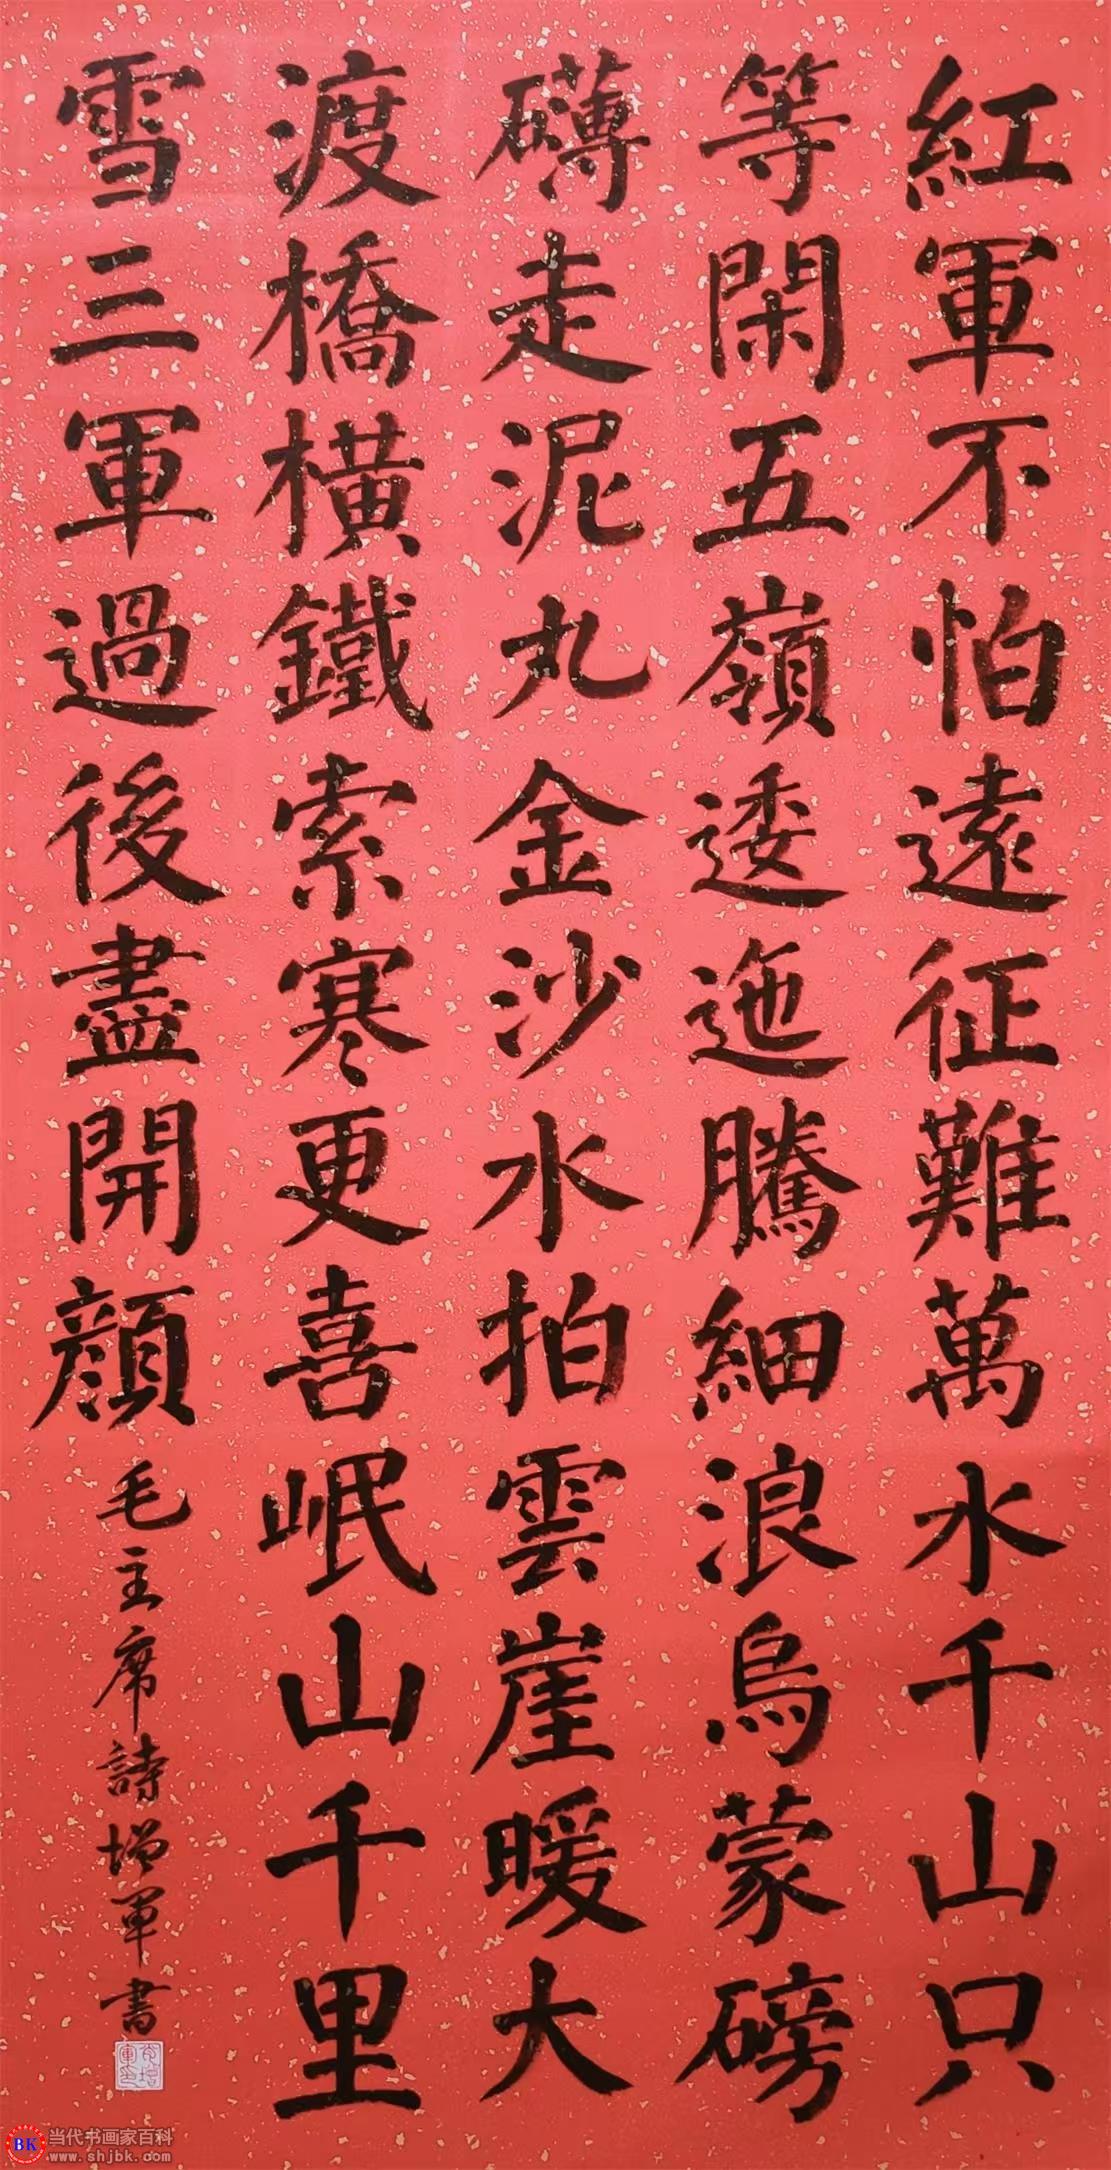 紅軍不怕遠征難萬水千山只
等閑五嶺逶迤騰細浪烏蒙磅
礴走泥丸金沙水拍雲崖暖大
渡橋橫鐵索寒更喜岷山千里
雪三軍過後盡開顔
毛主席詩增軍書
BK
当代书画家百科
www.shjbk.com